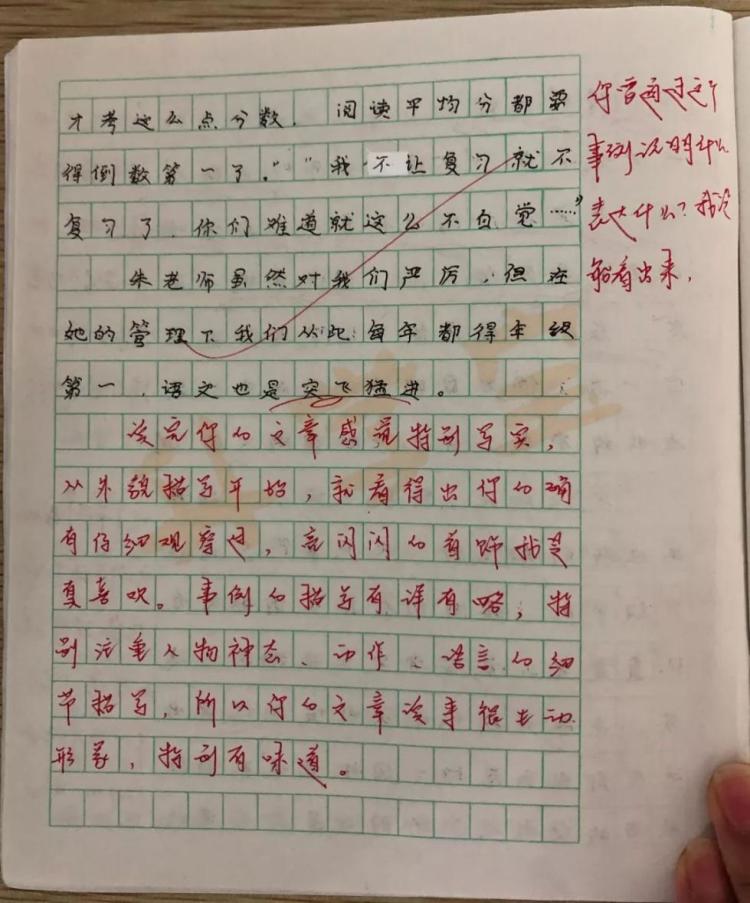 才考这么点分数，阅读平均分都要
得倒数第一了。”“我不让复习就不
复习了，你们难道就这么不自觉……”
朱老师虽然对我们严厉，但在
她的管理下我们从此每年都得年级
第一，语文也是突飞猛进。
读完你的文章感觉特别写实，
从外貌描写开始，就看得出你的确
有仔细观察过，亮闪闪的首饰我是
真喜欢。事例的描写有详有略，特
别注重人物神态、动作、语言的细
节描写，所以你的文章读来很生动
形象，特别有味道。
你曾通过这个
事例说明什么
表达什么？我没
能看出来，